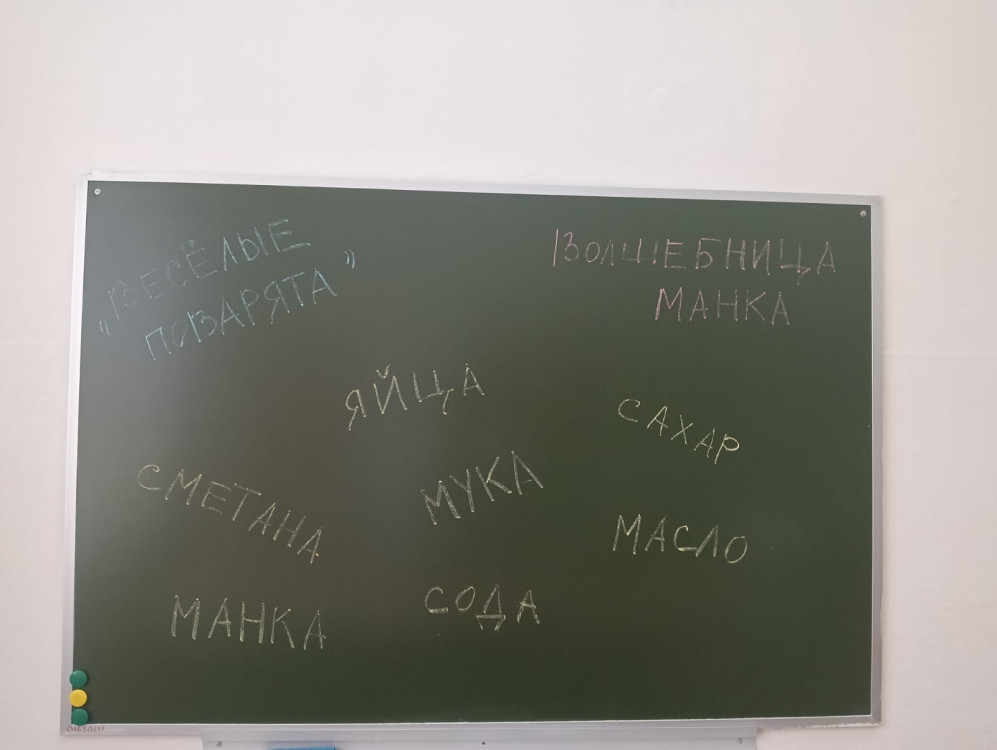 "ВЕСЁЛЫЕ
ПОВАРЯТА"
ВОЛШЕБНИЦА
МАНКА
ЯЙЦА
САХАР
СМЕТАНА
МУКА
МАСЛО
МАНКА
СОДА